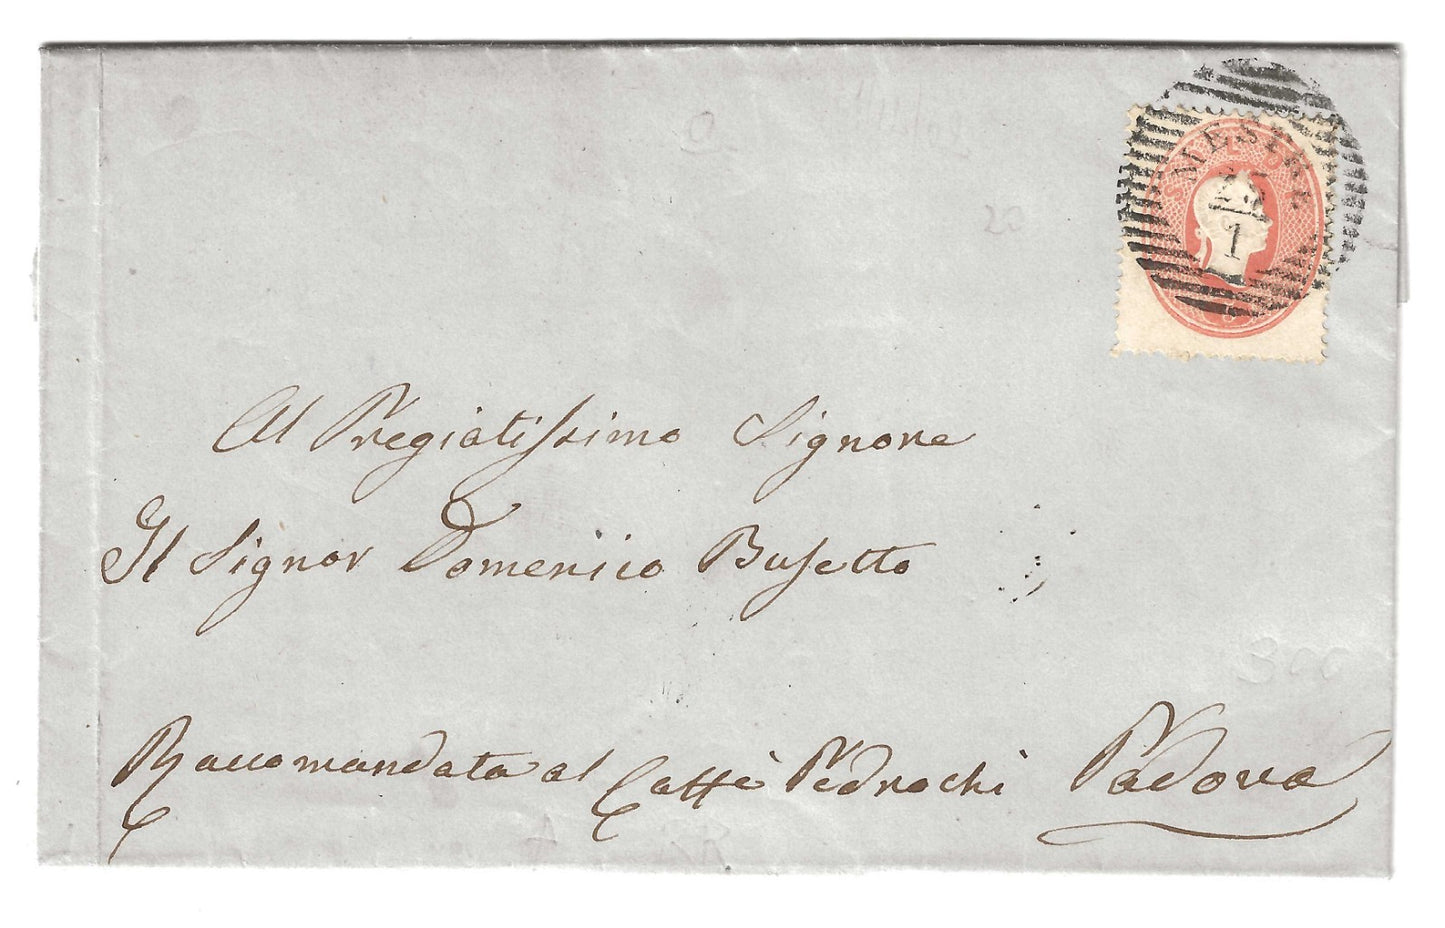 MESTRE
1
20
Al Pregiatissimo Signore
Il Signor Domenico Busetto
300
Raccomandata al Caffè Pedrochi Padova